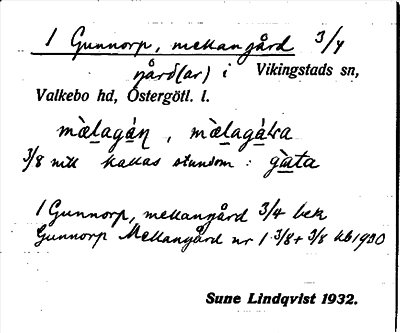 1 Gunnorp, mellangård 3/4
gård(ar) i Vikingstads sn,
Valkebo hd, Östergötl. l.
mɛ̀lagáṇ, mɛ̀lagáḷa
3/8 mtl kallas stundom: gàta
1 Gunnorp, mellangård 3/4 bek
Gunnorp Mellangård nr 1 3/8 + 3/8 kb 1930
Sune Lindqvist 1932.